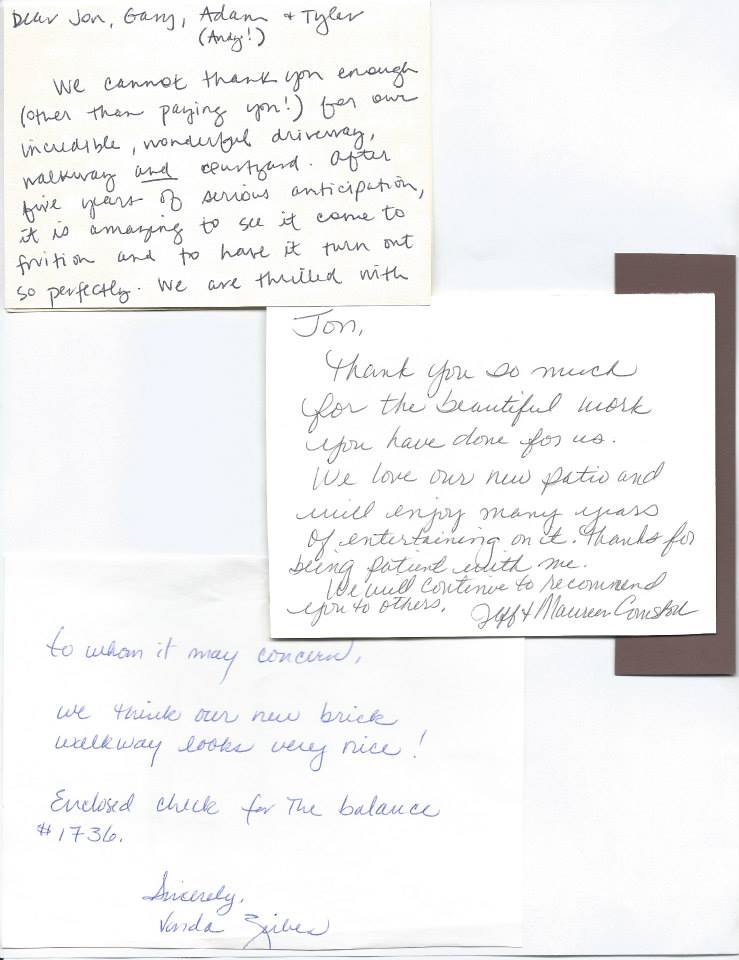 Dear Jon, Gary, Adam & Tyler
(Andy!)
We cannot thank you enough
(other than paying you!) for our
incredible, wonderful driveway,
walkway and courtyard. After
five years of serious anticipation,
it is amazing to see it come to
fruition and to have it turn out
so perfectly. We are thrilled with
Jon,
Thank you so much
for the beautiful work
you have done for us.
We love our new patio and
will enjoy many years
of entertaining on it. Thanks for
being patient with me.
We will continue to recommend
you to others. Jeff & Maureen
to whom it may concern,
we think our new brick
walkway looks very nice!
Enclosed check for the balance
#1736.
Sincerely,
Vonda